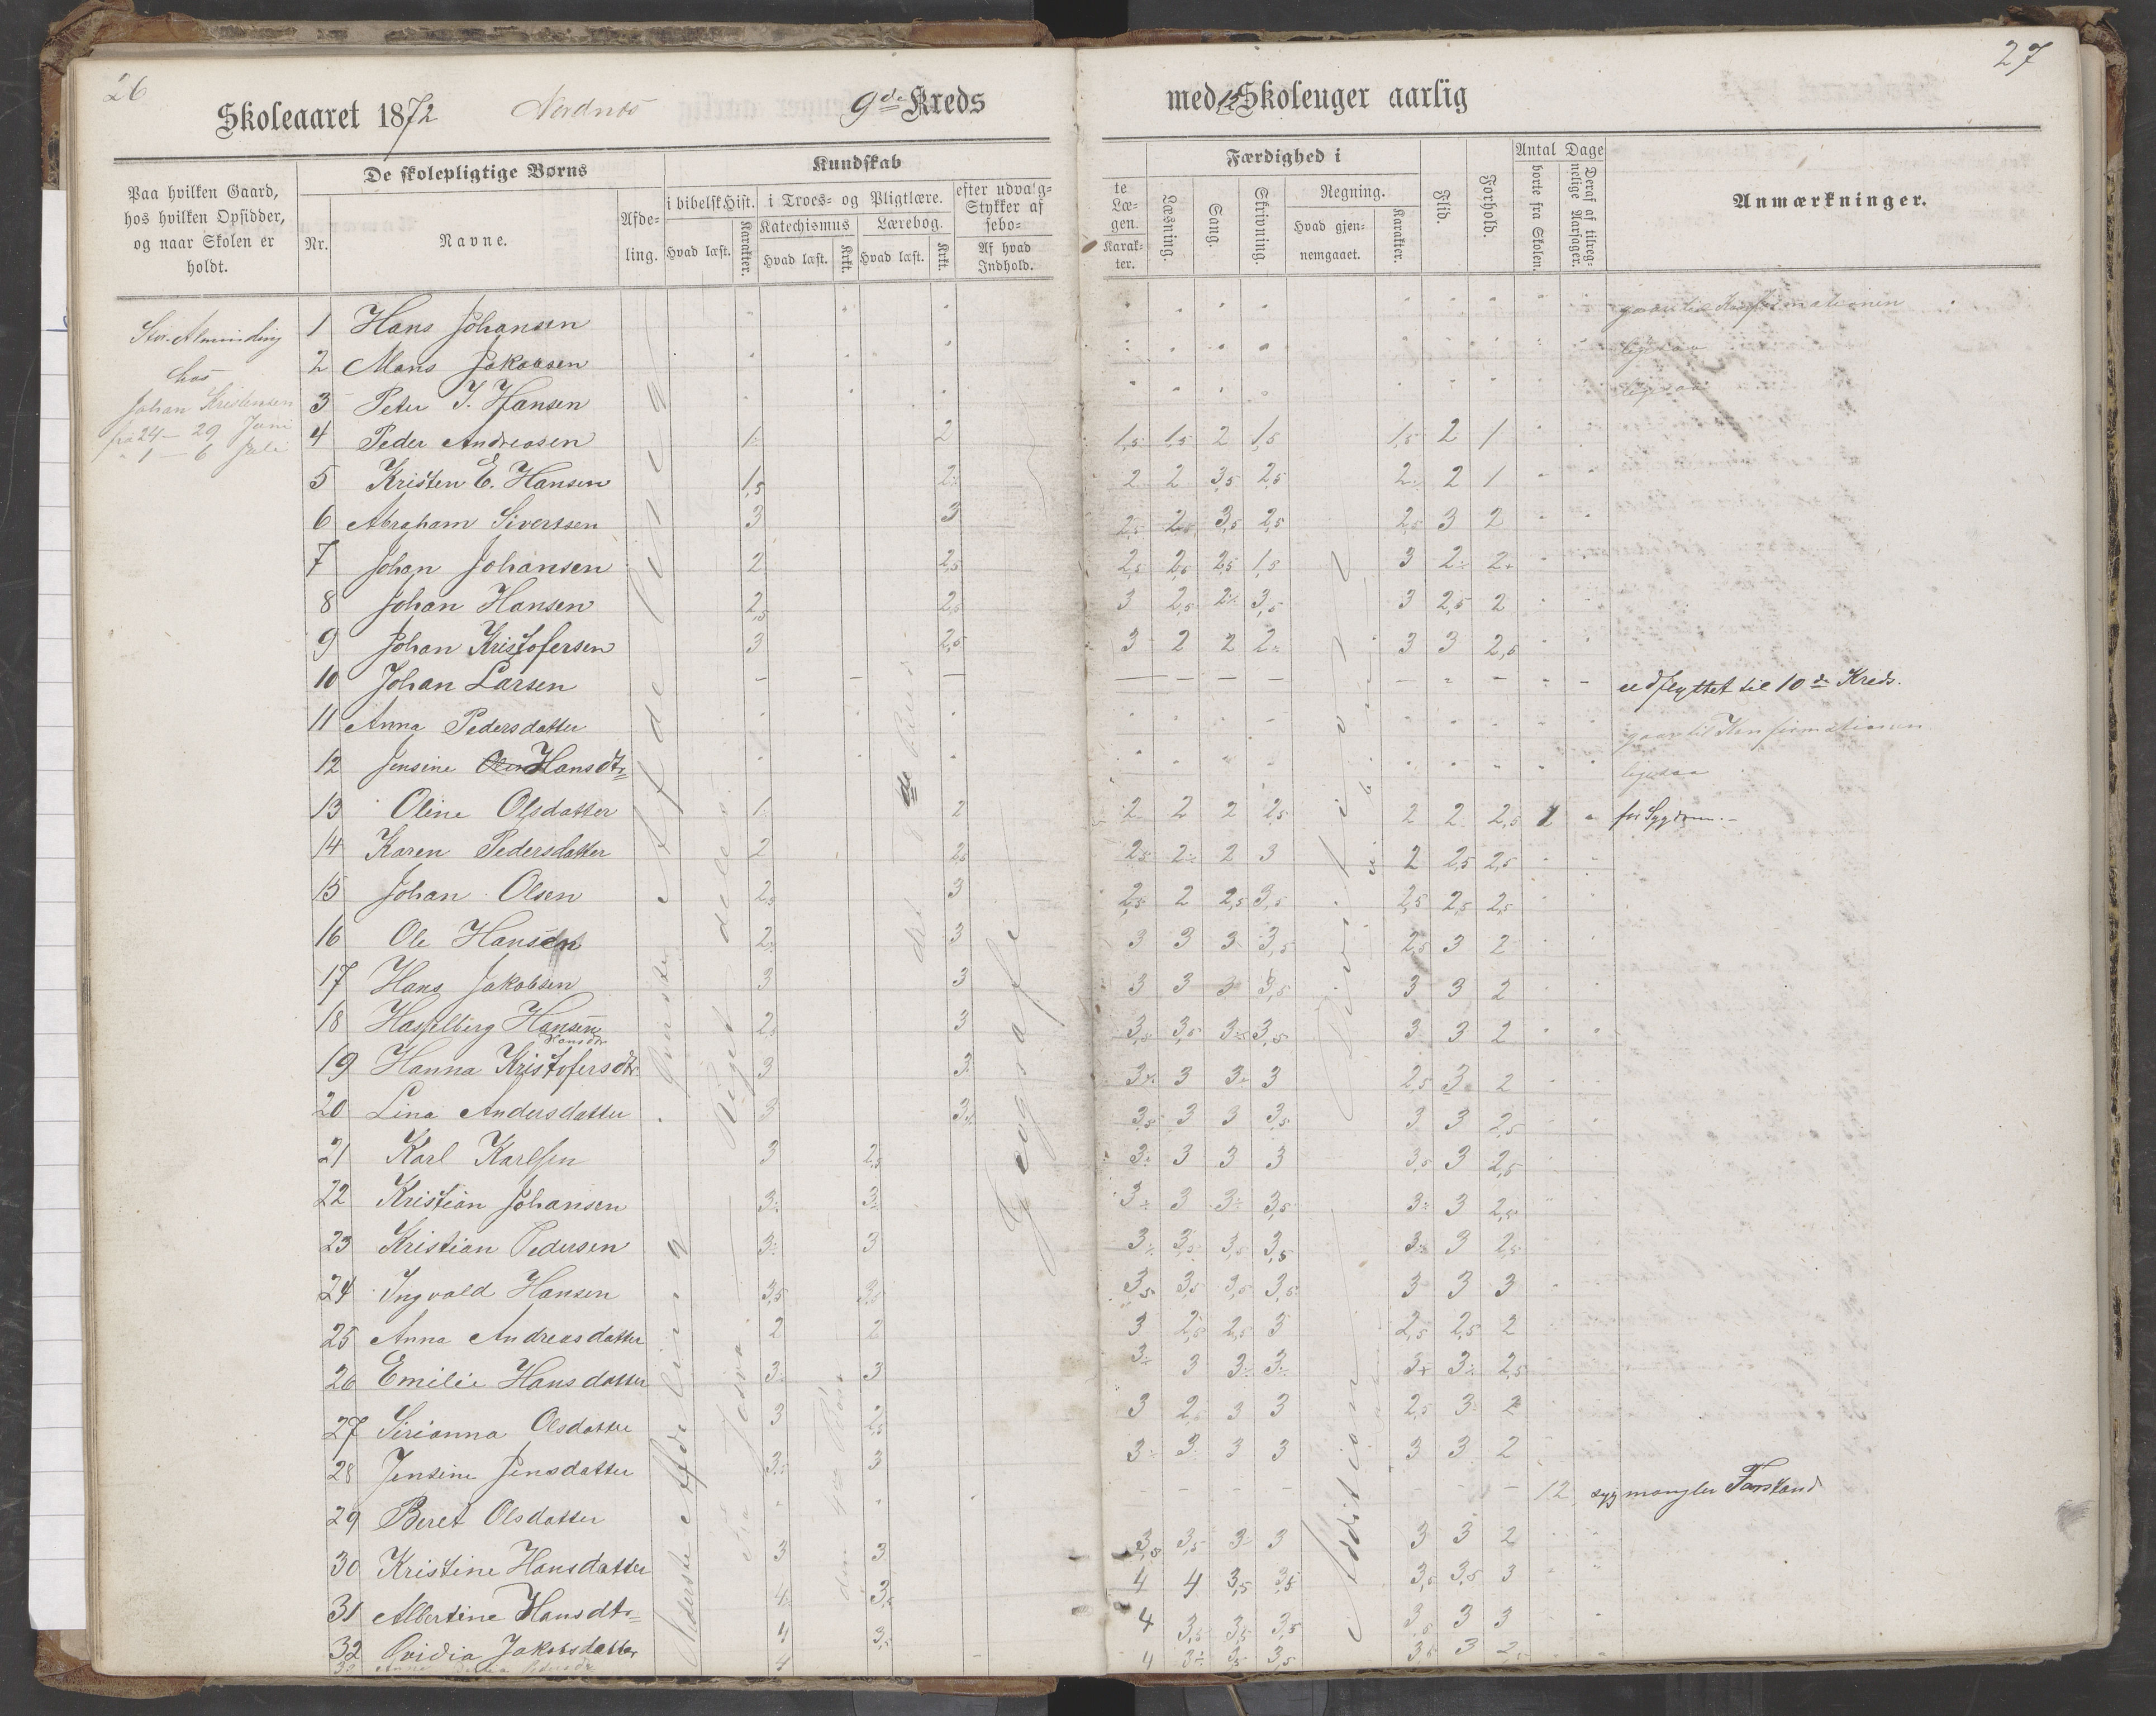 26
27
Skoleaaret 1872 Nordnes 9de Kreds
med 12 Skoleuger aarlig
Paa hvilken Gaard, hos hvilken Opsidder, og naar Skolen er holdt.
De skolepligtige Børns
Nr.
Navne.
Afdeling.
Kundskab
i bibelsk Hist.
Hvad læst.
Karakter.
i Troes- og Pligtlære.
Katechismus
Hvad læst.
Krkt.
Lærebog.
Hvad læst.
Krkt.
efter udvalg- Stykker af sebo=
Af hvad Indhold.
te Læ= gen.
Karak= ter.
Færdighed i
Læsning.
Sang.
Skrivning.
Regning.
Hvad gjen= nemgaaet.
Karakter.
Flid.
Forhold.
Antal Dage
borte fra Skolen.
Deraf af tilreg= nelige Aarsager.
Anmærkninger.
Str. Alminding
hos
Johan Kristensen
fra 24 – 29 Juni
" 1 – 6 Juli
Øverste Afdeling
Nederste Afdeling
Geografi
Division
Addition
1 Hans Johansen gaar til Konfirmationen
2 Mons Jakobsen ligesaa
3 Peter J. Hansen ligesaa
4 Peder Andreasen 1 2 1,5 1,5 2 1,5 1,5 2 1
5 Kristen E. Hansen 1,5 2 2 2 3,5 2,5 2 2 1
6 Abraham Sivertsen 3 3 2,5 2 3,5 2,5 2,5 3 2
7 Johan Johansen 2 2,5 2,5 2,5 2,5 1,5 3 2 2+
8 Johan Hansen 2,5 2,5 3 2,5 2 3,5 3 2,5 2
9 Johan Kristofersen 3 2,5 3 2 2 2 3 3 2,5
10 Johan Larsen udflyttet til 10de Kreds.
11 Anna Pedersdatter gaar til Konfirmationen
12 Jensine Hansdtr ligesaa
13 Oline Olsdatter 1 2 2 2 2 2,5 2 2 2,5 1 for Sygdom.
14 Karen Pedersdatter 2 2,5 2,5 2 2 3 2 2,5 2,5
15 Johan Olsen 2,5 3 2,5 2 2,5 3,5 2,5 2,5 2,5
16 Ole Hansen 2 3 3 3 3 3,5 2,5 3 2
17 Hans Jakobsen 3 3 3 3 3 3,5 3 3 2
18 Hasselberg Hansen 2 3 3,5 3,5 3 3,5 3 3 2
Hansdtr
19 Hanna Kristofersdtr 3 3 3 3 3 3 2,5 3 2
20 Lina Andersdatter 3 3 3,5 3 3 3,5 3 3 2,5
21 Karl Karlsen 3 2,5 3 3 3 3 3,5 3 2,5
22 Kristian Johansen 3 3 3 3 3 3,5 3 3 2,5
23 Kristian Pedersen 3 3 3 3,5 3,5 3,5 3 3 2,5
24 Ingvald Hansen 3,5 3,5 3,5 3,5 3,5 3,5 3 3 3
25 Anna Andreasdatter 2 2 3 2,5 2,5 3 2,5 2,5 2
26 Emilie Hansdatter 3 3 3 3 3 3 3+ 3 2,5
27 Sirianna Olsdatter 3 2,5 3 2,5 3 3 2,5 3 2
28 Jensine Jensdatter 3 3 3 3 3 3 3 3 2
29 Beret Olsdatter 12 syg mangler Forstand
30 Kristine Hansdatter 3 3 3,5 3,5 3 3 3 3 2
31 Albertine Hansdtr 4 3,5 4 4 3,5 3,5 3,5 3,5 3
32 Ovidia Jakobsdatter 4 3,5 4 3,5 3,5 3,5 3,5 3 3
33 4 4 3 3,5 3,5 3,5 3 2,5